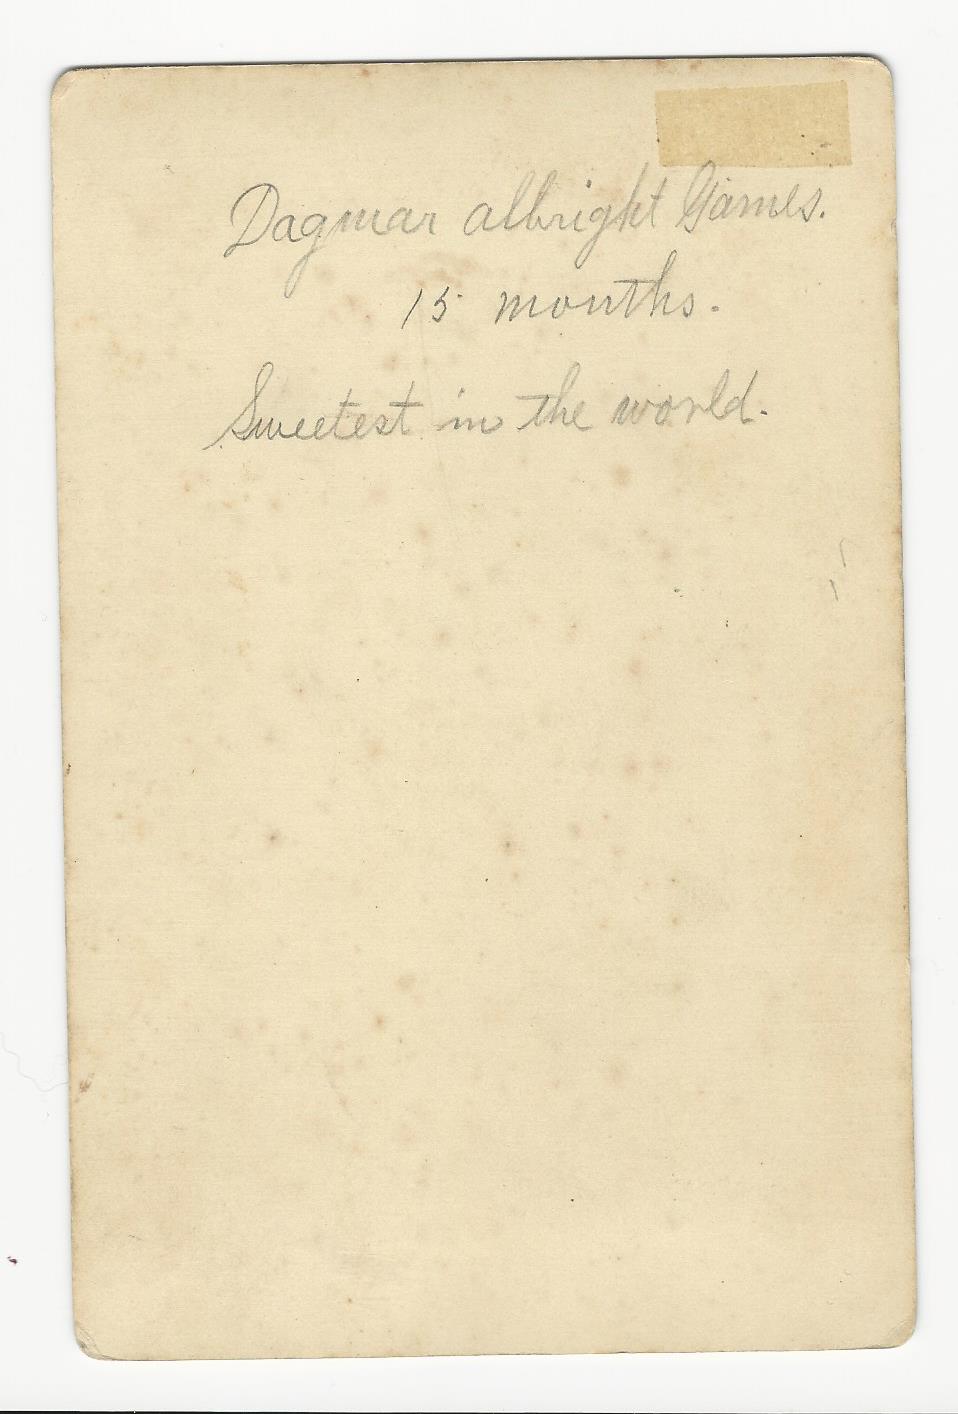 Dagmar albright Games.
15 months.
Sweetest in the world.